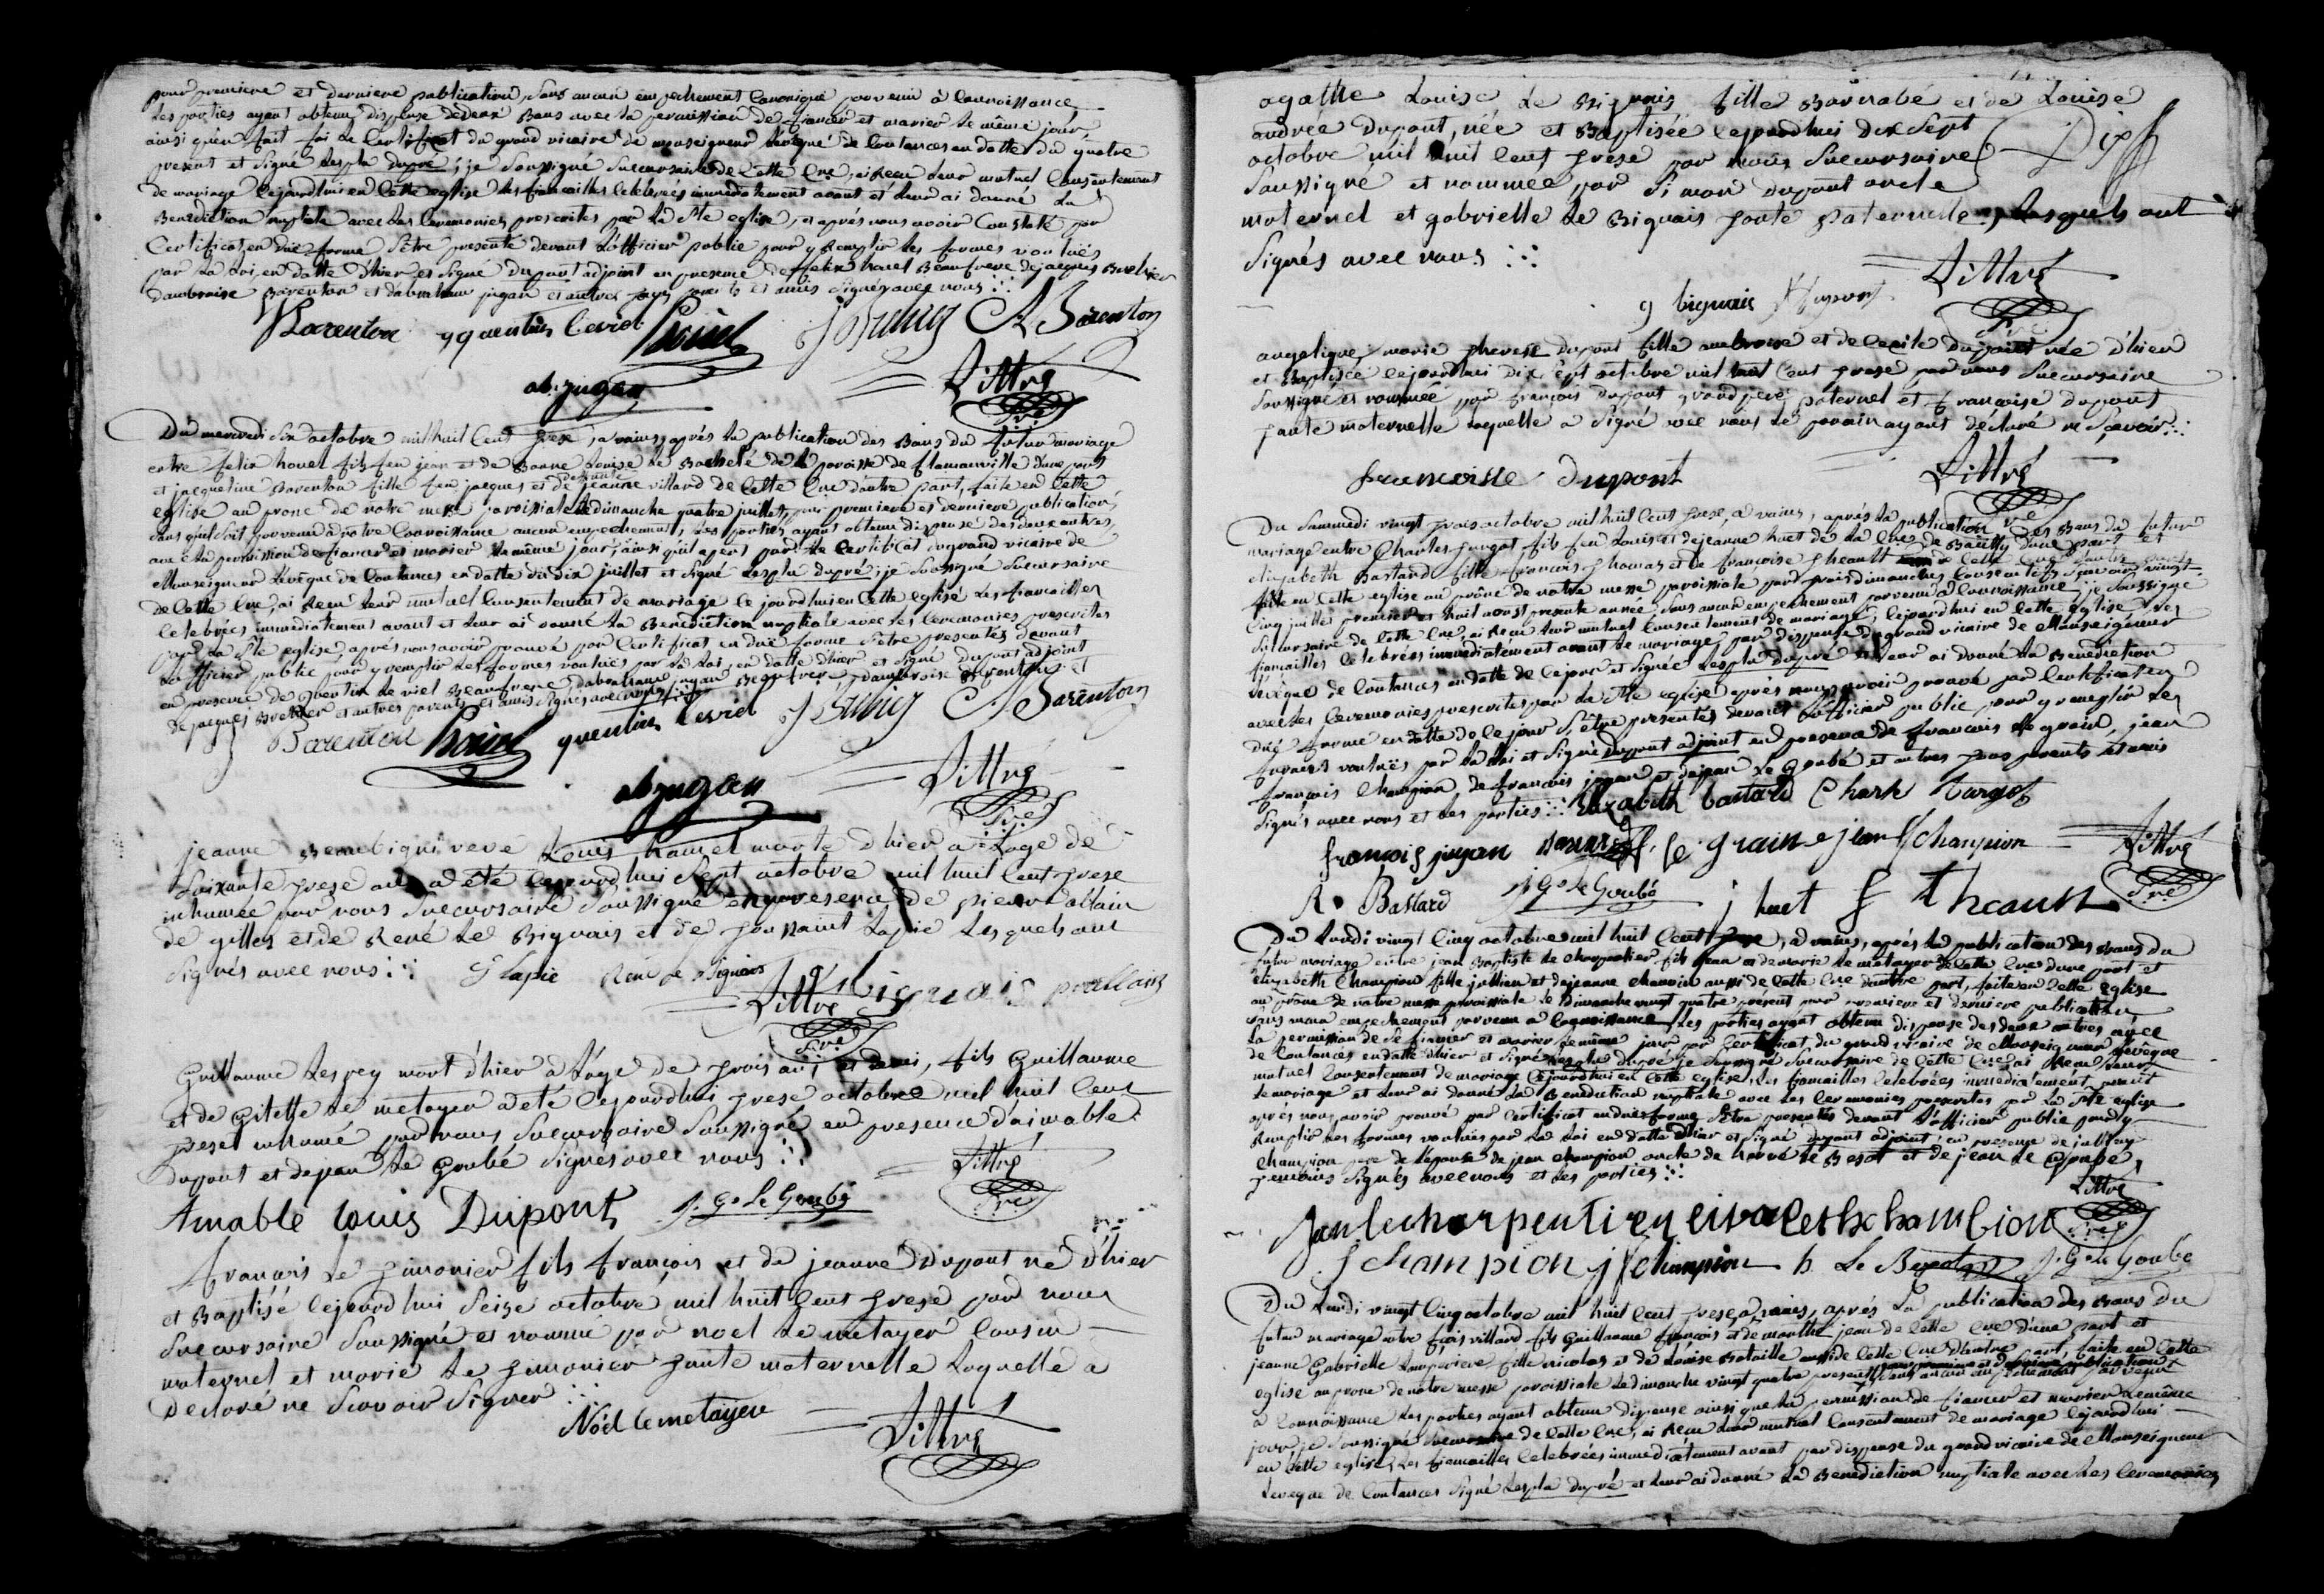 pour premiere et derniere publication, sans aucun empechement canonique parvenu à connoissance
les parties ayant obtenu dispense de deux bans avec la permission de fiancer et marier le même jour,
ainsi qu'en fait foi le certificat du grand vicaire de monseigneur l'evêque de Coutances en datte du quatre
present et signé Lespla dupré ; je soussigné succursaire de cette lue, ai recu leur mutuel consentement
de mariage cejourdhui en cette eglise les fiancailles celebrées immediatement avant et leur ai donné la
Benediction nuptiale avec les ceremonies prescrites par la Ste eglise, et après nous avoir constaté par
Certificat en due forme s'etre presenté devant l'officier public pour y remplir les formes vouluës
par la loi, en datte d'hier et signé dupont adjoint en presence de felix houel Beaufrere de jacques
d'ambroise Barenton et d'abraham jugan et autres parents et amis signés avec nous
Barenton q quentin leviel houel A Barenton
ab: jugan Littré
Du mercredi six octobre mil huit cent treze, a vains, après la publication des Bans du futur mariage
entre felix houel fils feu jean et de Bonne Louise Le de la paroisse de flamanville d'une part
et jacqueline Barenton fille feu jacques et de jeanne villard de cette lue d'autre part, faite en cette
eglise au prone de notre messe paroissiale le dimanche quatre juillet, pour premiere et derniere publication,
sans qu'il soit parvenu à notre connoissance aucun empechement, les parties ayant obtenu dispense des deux autres,
avec la permission de fiancer et marier le même jour, ainsi qu'il apert par le certificat du grand vicaire de
Monseigneur L'evêque de Coutances en datte du dix juillet et signé Lespla dupré, je soussigné succursaire
de cette lue, ai recu leur mutuel consentement de mariage ce jourdhui en cette eglise Les fiancailles
celebrées immediatement avant et leur ai donné la Benediction nuptiale avec les ceremonies prescrites
par la Ste eglise, après nous avoir prouvé par certificat en due forme s'etre presentés devant
L'officier public pour y remplir les formes vouluës par la loi, en datte d'hier et signé dupont adjoint
en presence de quentin le viel Beaufrere d'abraham jugan d'ambroise Barenton et
de jacques et autres parents et amis signés avec nous
Barenton houel quentin leviel A Barenton
ab jugan Littré
jeanne veve Louis hamel morte d'hier a l'age de
soixante treze ans a été cejourdhui sept octobre mil huit cent treze
inhumée par nous succursaire soussigné en presence de pierre allain
de gilles et de René Le Biguais et de toussaint Lapie Lesquels ont
signés avec nous T Lapie René Le Biguais
Littré g biguais p allain
Guillaume Lespey mort d'hier à l'age de trois ans et demi, fils Guillaume
et de Gilette le metayer a été cejourdhui treze octobre mil huit cent
treze inhumé par nous succursaire soussigné en presence d'aimable
dupont et de jean Le Goubé signés avec nous
Littré
Amable louis Dupont J. Ge Le Goubé
françois Le timonier fils françois et de jeanne Dupont né d'hier
et Baptisé cejourdhui seize octobre mil huit cent treze par nous
succursaire soussigné et nommé par noel Le metayer cousin
maternel et marie Le timonier tante maternelle Laquelle a
declaré ne sçavoir signer
Nöel lemetayer Littré
agathe Louise Le Biguais fille Barnabé et de Louise
andrée dupont, née et Baptisée cejourdhui dix sept
octobre mil huit cent treze par nous succursaire
soussigné et nommée par simon dupont oncle
maternel et gabrielle Le Biguais tante paternelle, Lesquels ont
signés avec nous
Littré
g biguais S dupont
angelique marie therese dupont fille ambroise et de cecile dupont née d'hier
et Baptisée cejourdhui dix sept octobre mil huit cent treze par nous succursaire
soussigné et nommée par françois dupont grand pere paternel et françoise dupont
tante maternelle laquelle a signé avec nous Le parain ayant déclaré ne sçavoir
françoise dupont Littré
Du sammedi vingt trois octobre mil huit cent treze, a vains, après la publication des Bans du futur
mariage entre Charles turgot fils feu Louis et de jeanne huet de la lue de d'une part et
elizabeth Bastard fille françois thomas et de françoise theault de cette lue d'autre part
faite en cette eglise au prône de notre messe paroissiale par trois dimanches consecutifs vingt
cinq juillet premier et huit aoust presente année sans aucun empechement parvenu à connoissance, je soussigné
succursaire de cette lue, ai recu leur mutuel consentement de mariage, cejourdhui en cette eglise Les
fiancailles celebrées immediatement avant le mariage par dispense du grand vicaire de Monseigneur
L'evêque de Coutances en datte de ce jour et signée Lespla dupré et leur ai donné la Benediction
avec les ceremonies prescrites par la Ste eglise après nous avoir prouvé par certificat en
due forme en datte de ce jour s'être presentés devant l'officier public pour y remplir les
formes vouluës par la loi et signé dupont adjoint en presence de francois Le grain, jean
françois Champion, de françois jugan et de jean Le Goubé et autres tous parents et amis
signés avec nous et les parties Elizabeth bastard Charle turgot
françois jugan f. le grain jean f champion Littré
R. Bastard J Ge Le Goubé j huet f theault
Du Lundi vingt cinq octobre mil huit cent treze, a vains, après la publication des Bans du
futur mariage entre jean Baptiste Le charpentier fils jean et de marie Le metayer de cette lue d'une part et
elizabeth Champion fille jullien et de jeanne chanoin aussi de cette lue d'autre part, faite en cette eglise
au prône de notre messe paroissiale Le Dimanche vingt quatre present pour premiere et derniere publication,
sans aucun empechement parvenu a connoissance, Les parties ayant obtenu dispense des deux autres avec
La permission de se fiancer et marier le même jour par certificat du grand vicaire de Monseigneur L'evêque
de Coutances en datte d'hier et signé Lespla dupré, je soussigné succursaire de cette lue, ai recu leur
mutuel consentement de mariage cejourdhui en cette eglise, Les fiancailles celebrées immediatement avant
le mariage et leur ai donné la Benediction nuptiale avec les ceremonies prescrites par la Ste eglise
après nous avoir prouvé par certificat en due forme s'être presentés devant l'officier public pour y
remplir les formes vouluës par la loi en datte d'hier et signé dupont adjoint, en presence de jullien
champion pere de l'epouse de jean champion oncle de hervé le Besot et de jean Le Goubé,
temoins signés avec nous et les parties
Littré
Jan le charpentier elizabeth chambion
J champion j f champion h. Le Besot J. Ge Le Goubé
Du Lundi vingt cinq octobre mil huit cent treze, a vains, après La publication des Bans du
futur mariage entre fçois villard fils Guillaume françois et de marthe jean de cette lue d'une part et
jeanne Gabrielle fille nicolas et de Louise Bataille aussi de cette lue d'autre part, faite en cette
eglise au prone de notre messe paroissiale Le dimanche vingt quatre present pour premiere et derniere publication sans aucun empechement parvenu
à connoissance Les parties ayant obtenu dispense ainsi que la permission de fiancer et marier le même
jour, je soussigné succursaire de cette lue, ai recu leur mutuel consentement de mariage cejourdhui
en cette eglise, Les fiancailles celebrées immediatement avant par dispense du grand vicaire de Monseigneur
L'eveque de Coutances signé Lespla dupré et leur ai donné La Benediction nuptiale avec les ceremonies